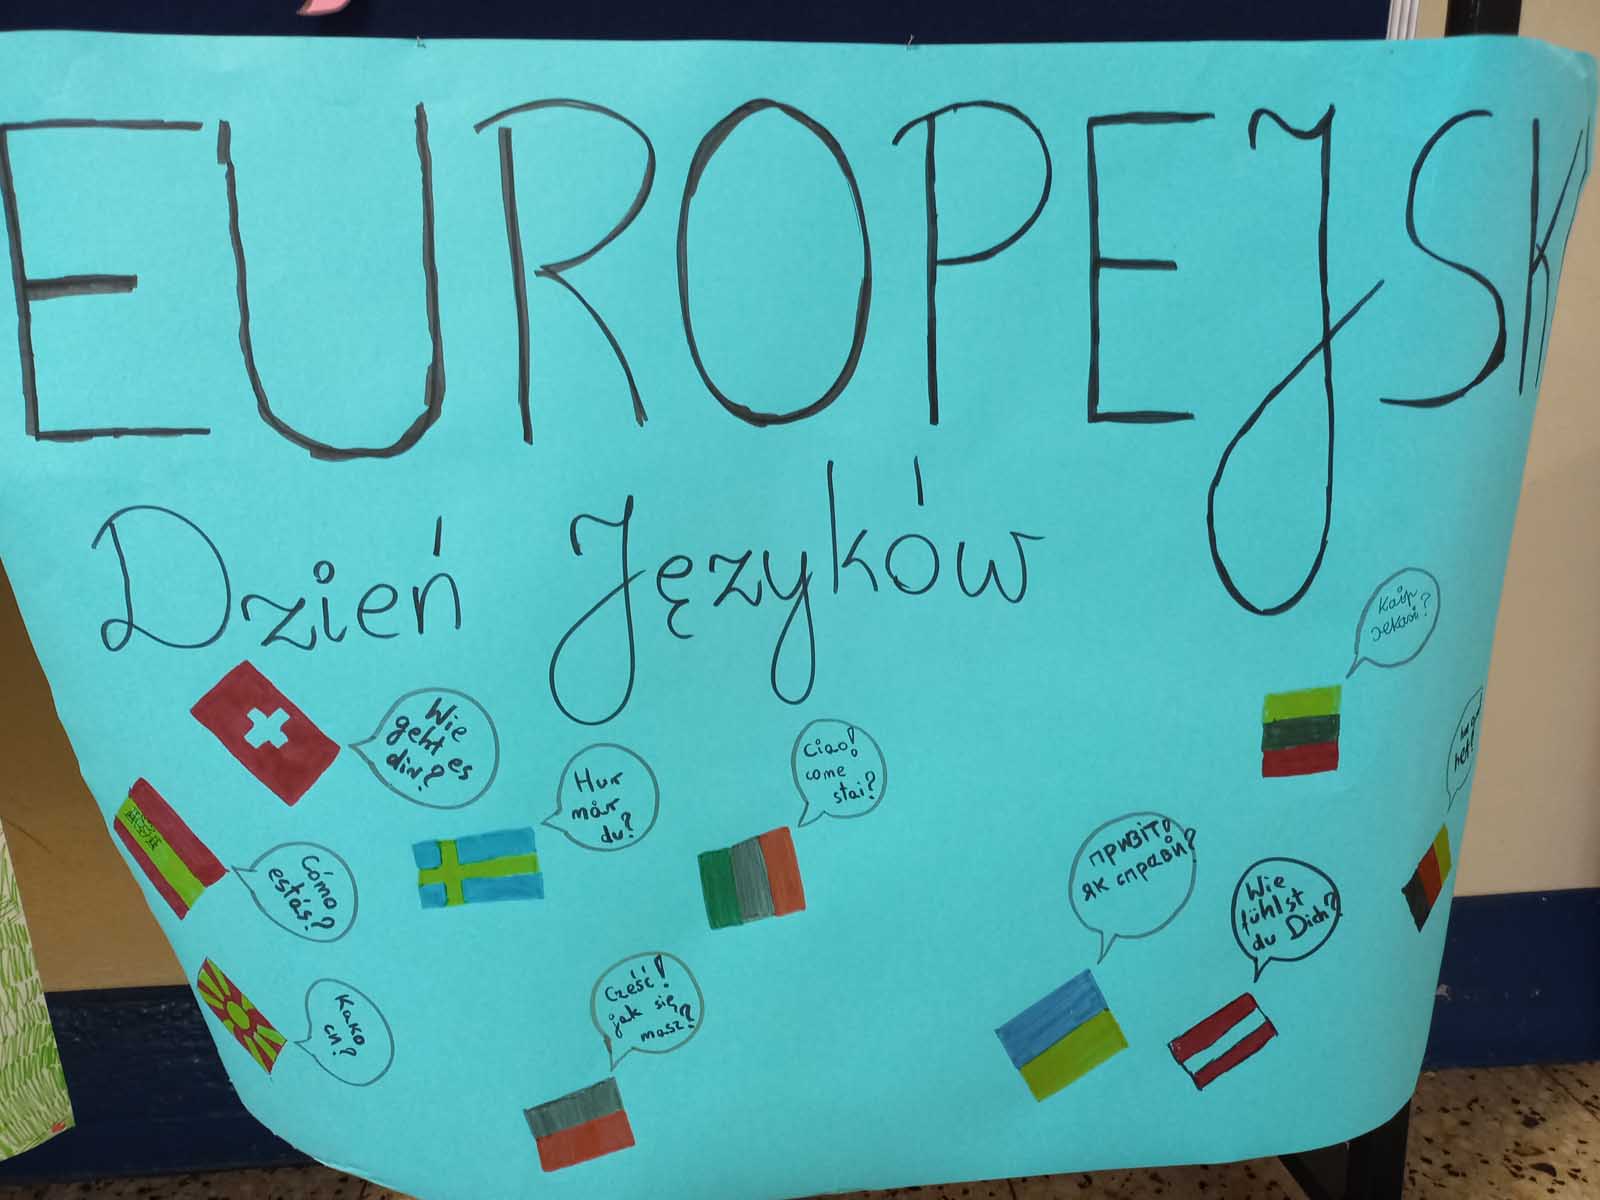 EUROPEJSK
Dzień Języków
Kaip
sekasi?
Wie
geht es
dir?
Hur
mår
du?
Ciao!
come
stai?
Cómo
estás?
привіт!
як справи?
Wie
fühlst
du Dich?
Cześć!
jak się
masz?
Како
си?